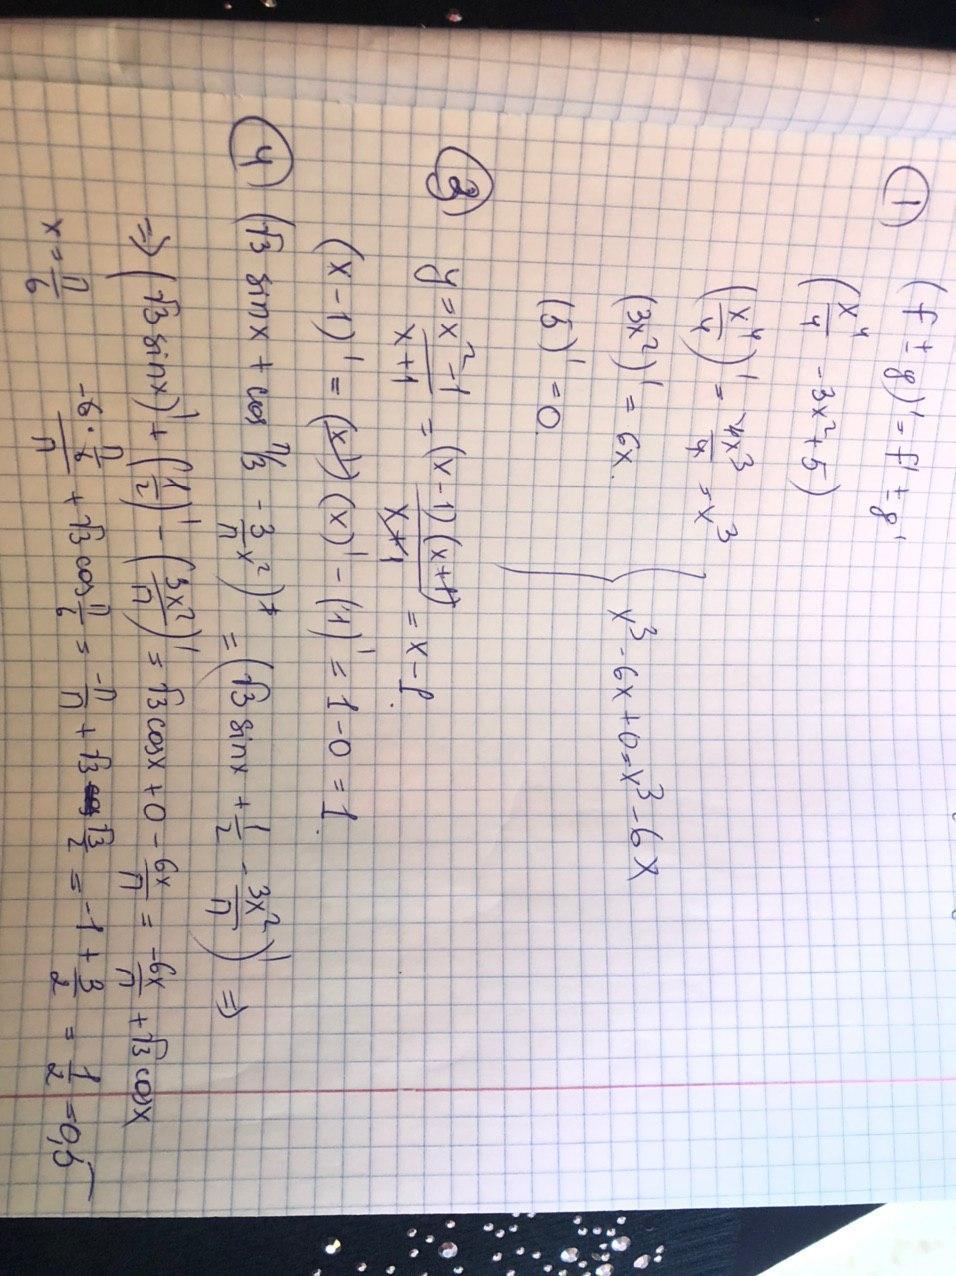 1 (f ± g)' = f' ± g'
(x⁴/4 - 3x² + 5)
(x⁴/4)' = 4x³/4 = x³
(3x²)' = 6x.
(5)' = 0.
} x³ - 6x + 0 = x³ - 6x
3) y = x² - 1/x + 1 = (x - 1)(x + 1)/x + 1 = x - 1.
(x - 1)' = (x)' - (1)' = 1 - 0 = 1.
4) (√3 sinx + cos π/3 - 3/π x²)' = (√3 sinx + 1/2 - 3x²/π)' ⇒
⇒ (√3 sinx)' + (1/2)' - (3x²/π)' = √3 cosx + 0 - 6x/π = -6x/π + √3 cosx
x = π/6 -6 · π/6/π + √3 cos π/6 = -π/π + √3 √3/2 = -1 + 3/2 = 1/2 = 0,5